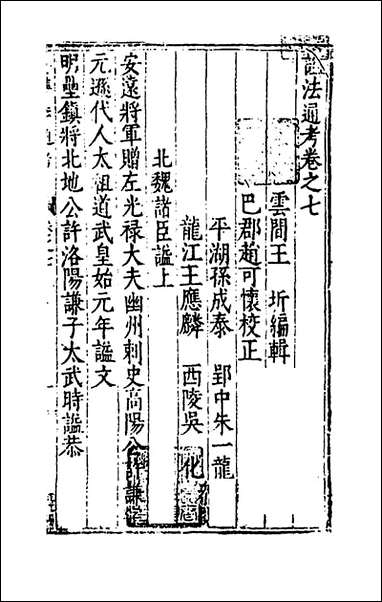 諡法通考卷之七
雲間王　圻編輯
巴郡趙可懷校正
平湖孫成泰　郢中朱一龍
龍江王應麟　西陵吳　化
北魏諸臣諡上
安遠將軍贈左光祿大夫幽州刺史高陽公許謙字
元遜代人太祖道武皇始元年諡文
明壘鎮將北地公許洛陽謙子太武時諡恭